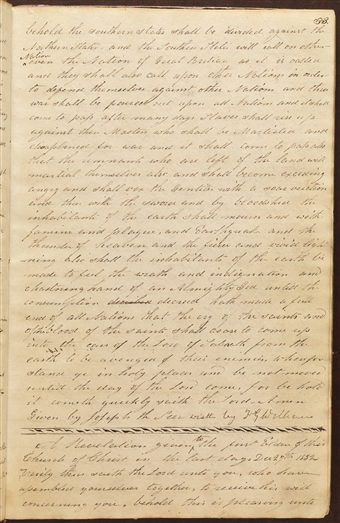 33.
behold the southern States shall be divided against the
Northern States, and the Southern States will call on other
Nation
even the Nation of Great Britian as it is called
and they shall also call upon other Nations in order
to defend themselves against other Nations and thus
war shall be poured out upon all Nations and it shall
come to pass after many days Slaves shall rise up
against their Masters who shall be Martialed and
disaplined for war and it shall come to pass also
that the remnants who are left of the land will
martial themselves also and shall become exceding
angry and shall vex the Gentiles with a soar vexation
and thus with the sword and by bloodshed the
inhabitants of the earth shall mourn and with
famine and plague, and Earthquake and the
thunder of heaven and the fierce and vivid light
ning also shall the inhabitants of the earth be
made to feel the wrath and indignation and
chastning hand of an Almighty God untill the
consumption decreed hath made a full
end of all Nations that the cry of the saints and
of the blood of the saints shall cease to come up
into the ears of the Lord of Sabaoth from the
earth to be avenged of their enemies wherefore
stand ye in holy places and be not moved
untill the day of the Lord come, for be hold
it cometh quickly saith the Lord Amen
Given by Joseph the Seer
A Revelation given to the first Elders of this
Church of Christ in the last days Dec 27th 1832
Verily thus saith the Lord unto you, who have
assembled yourselves together, to receive his will
concerning you, behold this is pleasing unto